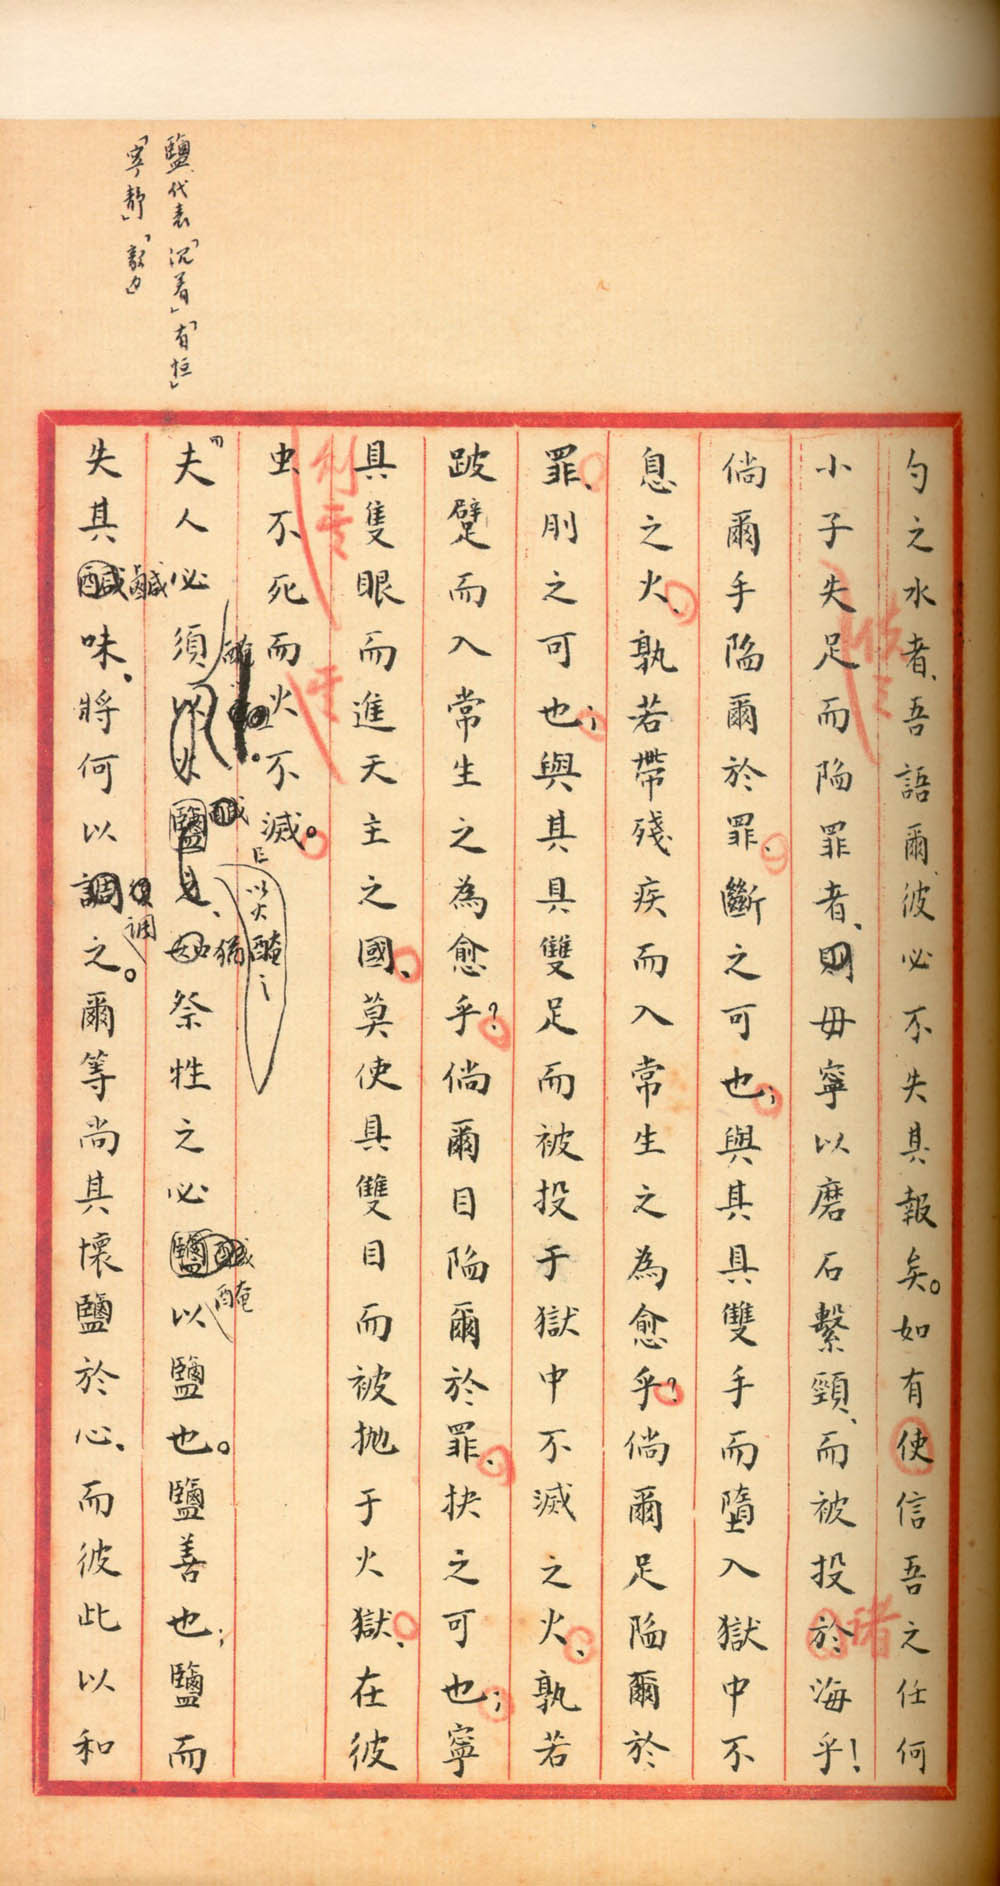 鹽代表「沉着」「有恒」
「寧靜」「毅力」
勺之水者、吾語爾、彼必不失其報矣。如有使信吾之任何
小子失足而陷罪者、則毋寧以磨石繫頸、而被投於海乎！
諸
倘爾手陷爾於罪、斷之可也；與其具雙手而墮入獄中不
息之火、孰若帶殘疾而入常生之為愈乎？倘爾足陷爾於
罪、刖之可也；與其具雙足而被投于獄中不滅之火、孰若
跛躄而入常生之為愈乎？倘爾目陷爾於罪、抉之可也；寧
具隻眼而進天主之國、莫使具雙目而被拋于火獄、在彼
虫不死而火不滅。
以火醃之
夫人必須鹽、如猶祭牲之必鹽醃以鹽也。鹽善也；鹽而
失其醎鹹味、將何以調復調之。爾等尚其懷鹽於心、而彼此以和